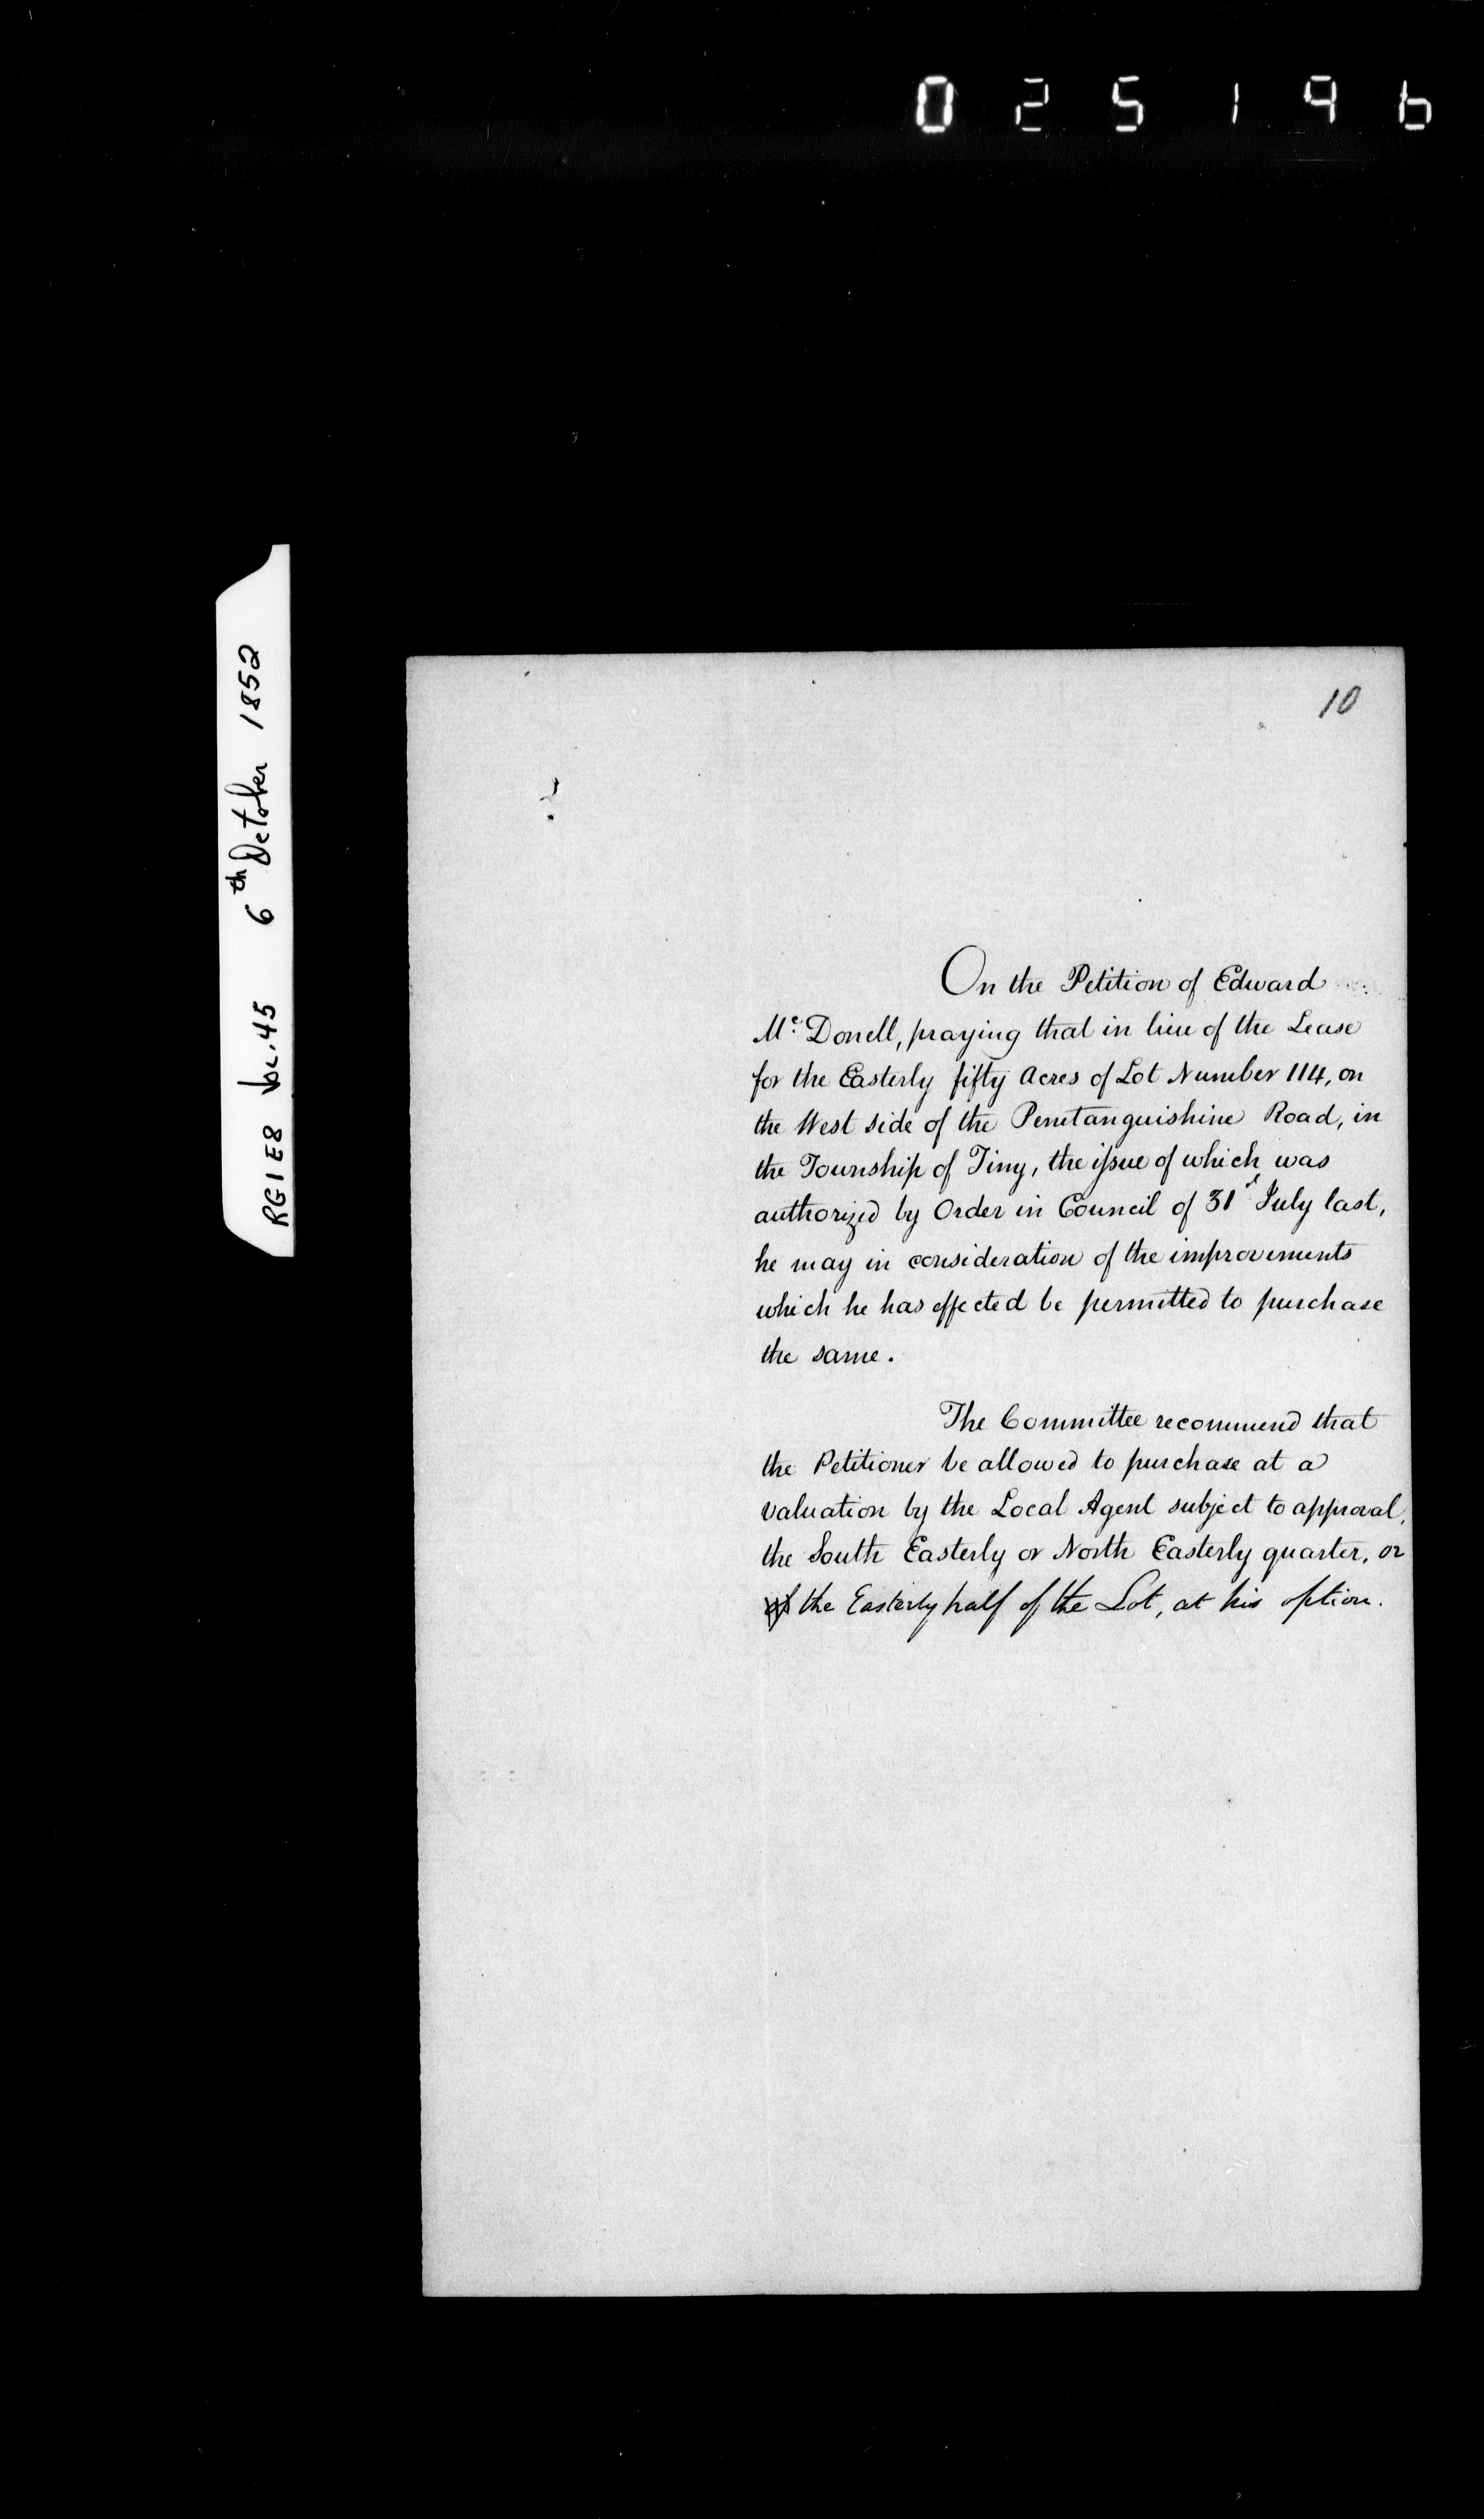 025196
RG1E8 Vol.45 6th October 1852
10
On the Petition of Edward
Mc. Donell, praying that in lieu of the Lease
for the Easterly fifty Acres of Lot Number 114, on
the West side of the Penetanguishine Road, in
the Township of Tiny, the issue of which was
authorized by Order in Council of 31st July last,
he may in consideration of the improvements
which he has effected be permitted to purchase
the same.
The Committee recommend that
the Petitioner be allowed to purchase at a
valuation by the Local Agent subject to approval,
the South Easterly or North Easterly quarter, or
the Easterly half of the Lot, at his option.